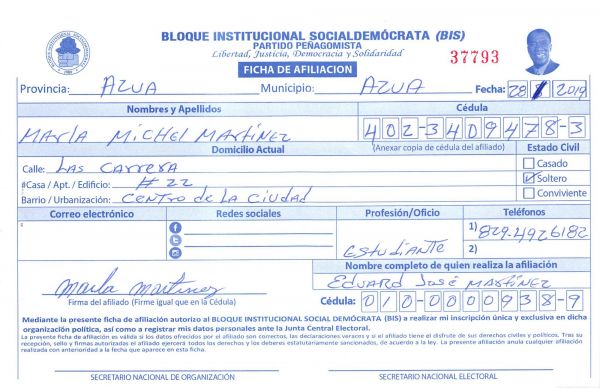 BLOQUE INSTITUCIONAL SOCIALDEMÓCRATA (BIS)
PARTIDO PEÑAGOMISTA
Libertad, Justicia, Democracia y Solidaridad
37793
FICHA DE AFILIACION
Provincia: AZUA Municipio: AZUA Fecha: 28 2019
Nombres y Apellidos Cédula
Marla Michel Martinez 402-3409478-3
Domicilio Actual (Anexar copia de cédula del afiliado) Estado Civil
Calle: Las Carrera Casado
#Casa / Apt. / Edificio: # 22 Soltero
Barrio / Urbanización: Centro de La Ciudad Conviviente
Correo electrónico Redes sociales Profesión/Oficio Teléfonos
1) 829-4926182
Estudiante 2)
Nombre completo de quien realiza la afiliación
Marla Martinez Eduard José Martínez
Firma del afiliado (Firme igual que en la Cédula) Cédula: 010-0000938-9
Mediante la presente ficha de afiliación autorizo al BLOQUE INSTITUCIONAL SOCIAL DEMÓCRATA (BIS) a realizar mi inscripción única y exclusiva en dicha
organización política, así como a registrar mis datos personales ante la Junta Central Electoral.
La presente ficha de afiliación es válida si los datos ofrecidos por el afiliado son correctos, las declaraciones veraces y si el afiliado tiene el disfrute de sus derechos civiles y políticos. Tras su
recepción, sello y firmas autorizadas el afiliado ejercerá todos los derechos y los deberes estatutariamente sancionados, de acuerdo a la ley. La presente afiliación anula cualquier afiliación
realizada con anterioridad a la fecha que aparece en esta ficha.
SECRETARIO NACIONAL DE ORGANIZACIÓN SECRETARIO NACIONAL ELECTORAL